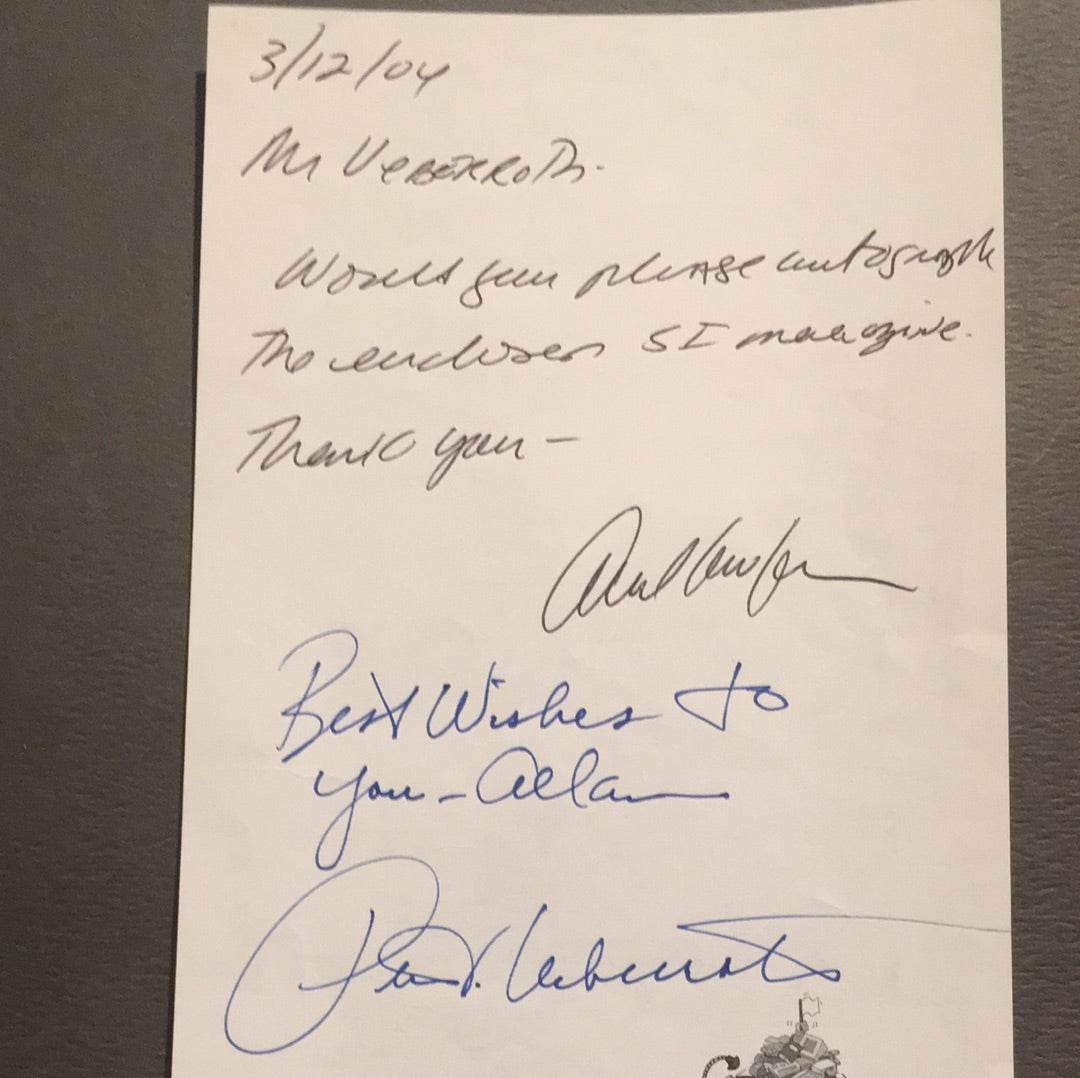 3/12/04
Mr Ueberroth.
Would you please autograph
The enclosed SI magazine.
Thank you –
Best Wishes to
you – Allan
Peter V. Ueberroth